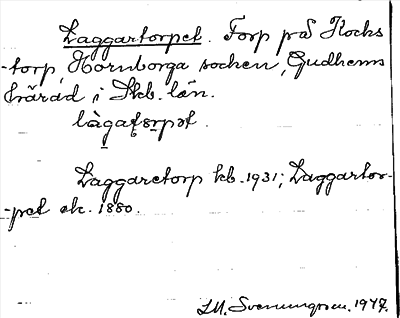 Laggartorpet. Torp på Stocks
-torp, Hornborga socken, Gudhems
härad i Skb. län.
Laggaretorp kb. 1931; Laggartor-
-pet ek. 1880.
Svenungsson. 1947.